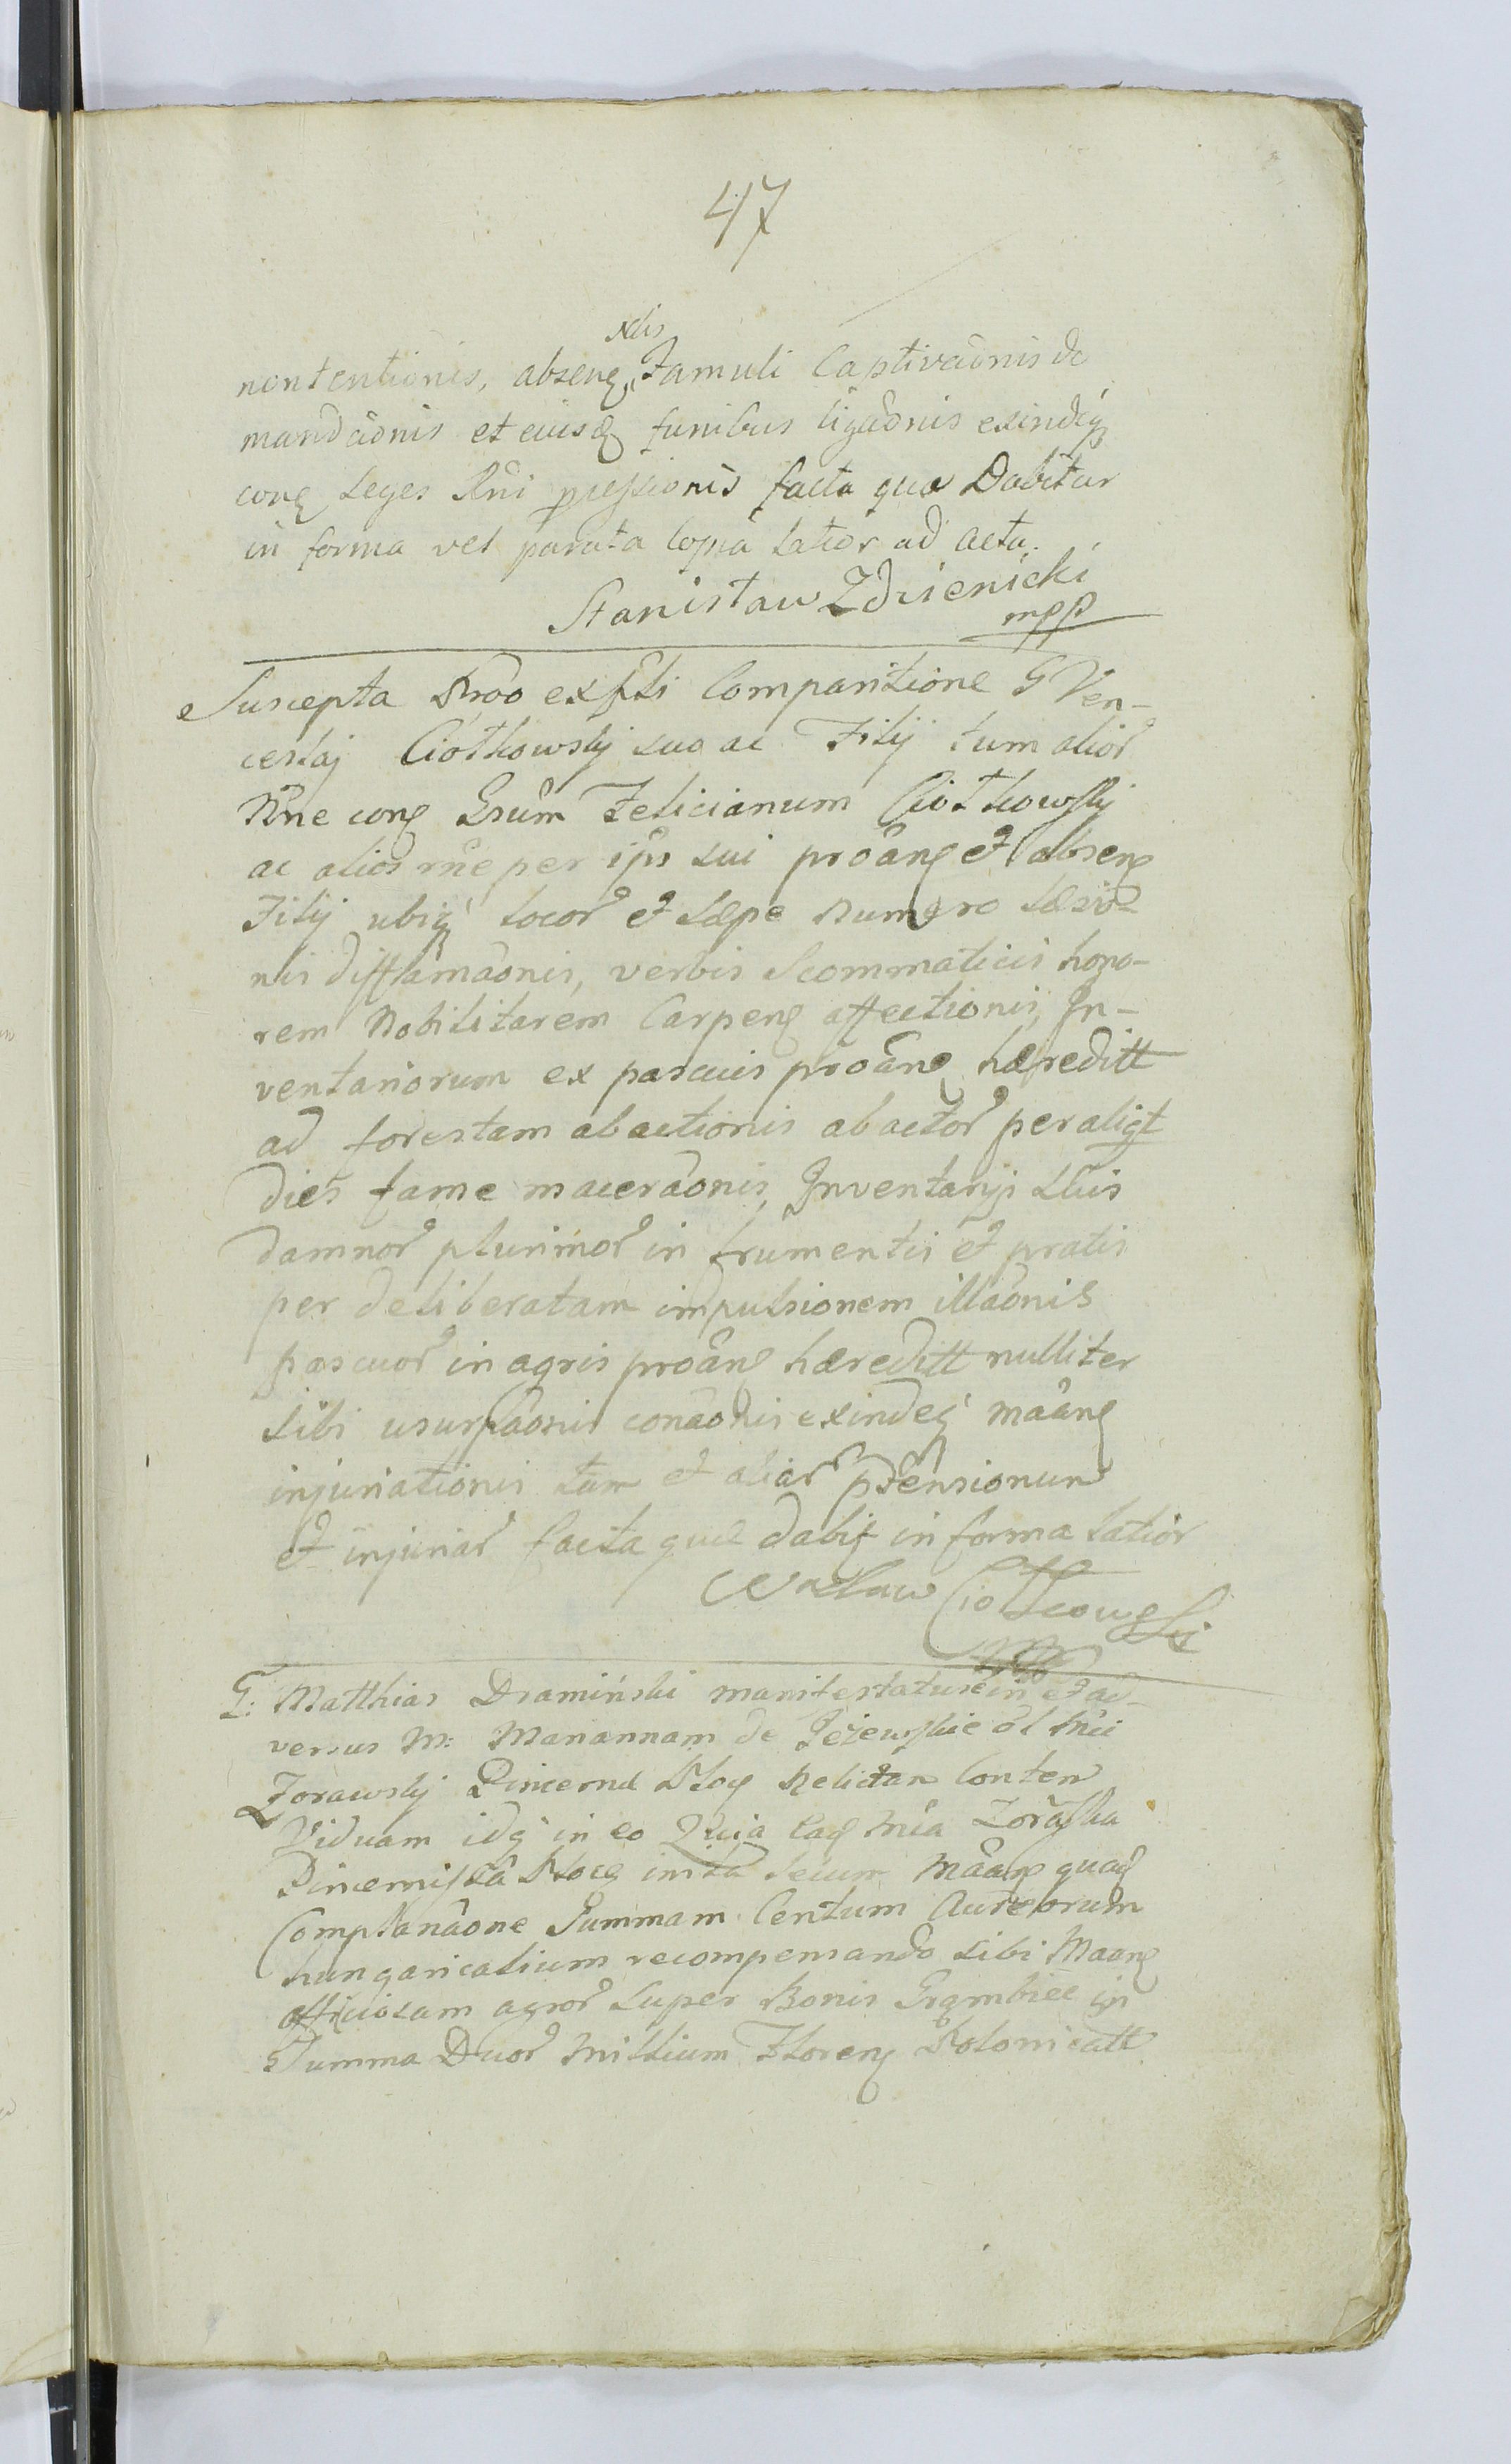 47
Nlis
nontentionis, absenq Famuli Captivaonis de
mandaonis et eiusd funibus ligaonis exindeq
conq Leges Rni pressionis facta qua Dabitur
in forma vel parata copia latior ad acta.
Stanisław Zdzienicki
mpp
Suscepta Proo Comparitione G Ven-
ceslaj Ciołkowskj suo ac Filij tum alior
Nne conq Grum Felicianum Ciołkowskj
ac alios rne per ips sui proanq et absenq
Filij ubiq locor et sæpe numero læsio-
nis difflamaonis, verbis Scommaticis hono-
rem Nobilitarem Carpenq affectionis, In-
ventariorum ex pascuis proanq hæreditt
ad forestam abactionis abactor per aliqt
dies fame maceraonis, Inventarijs suis
damnor plurimor in frumentis et pratis
per deliberatam impulsionem illaonis
pascuor in agris proanq hæreditt nulliter
sibi usurpaonis conaonis exindeq maanq
injuriationis tum et aliar ptensionum
et injuriar facta quæ dabit in forma latior
Wacław Ciołkowski
mpp
G: Matthias Dramiński manifestatus e in et ad-
versus M: Mariannam de Jeżewskie ol Mci
Zorawskj Pincernæ Ploc Relictam Conten
Viduam idq in eo Quia eaq Mca Zoraska
Pincernissa Plocq inita secum Maanq quaq
Complanaone Summam Centum Aureorum
hungaricalium recompensando sibi Maanq
officiosam agror super Bonis Grąmbiec in
Summa Duor Millium Florenq Polonicatt